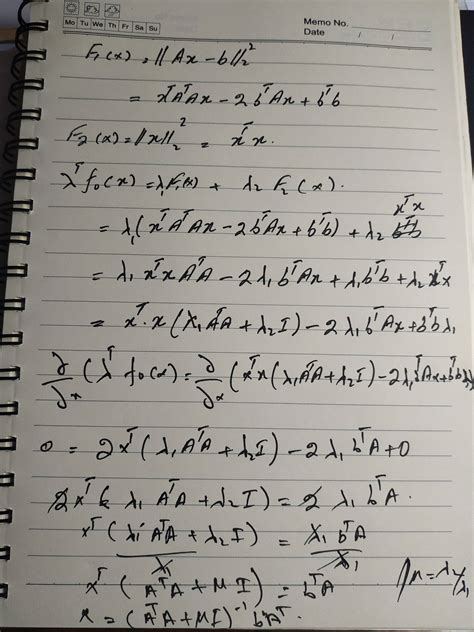 Memo No.
Mo Tu We Th Fr Sa Su
Date / /
F₁(x) = ||Ax - b||₂²
= xᵀAᵀAx - 2bᵀAx + bᵀb
F₂(x) = ||x||₂² = xᵀx.
λᵀf₀(x) = λ₁F₁(x) + λ₂ F₂(x).
= λ₁(xᵀAᵀAx - 2bᵀAx + bᵀb) + λ₂ xᵀx
= λ₁ xᵀx AᵀA - 2λ₁bᵀAx + λ₁bᵀb + λ₂ xᵀx
= xᵀ·x (λ₁AᵀA + λ₂I) - 2λ₁bᵀAx + bᵀbλ₁
∂/∂x (λᵀf₀(x)) = ∂/∂x (xᵀx(λ₁AᵀA + λ₂I) - 2λ₁bᵀAx + bᵀbλ₁)
0 = 2xᵀ(λ₁AᵀA + λ₂I) - 2λ₁bᵀA + 0
2xᵀ( λ₁AᵀA + λ₂I) = 2 λ₁bᵀA.
xᵀ(λ₁AᵀA + λ₂I)/λ₁ = λ₁bᵀA/λ₁
xᵀ(AᵀA + μI) = bᵀA
μ = λ₂/λ₁
x = (AᵀA + μI)⁻¹ bAᵀ.